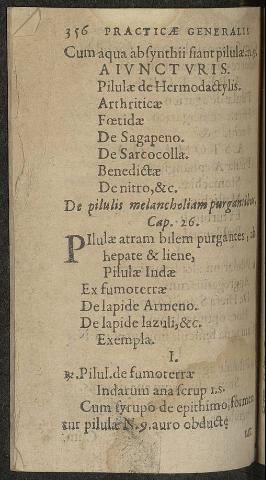 356 PRACTICÆ GENERALIS
Cum aqua absynthii fiant pilulæ.
A IVNCTVRIS.
Pilulæ de Hermodactylis.
Arthriticæ
Fœtidæ
De Sagapeno.
De Sarcocolla.
Benedictæ
De nitro, &c.
De pilulis melancholiam purgantibus,
Cap. 26.
PIlulæ atram bilem purgantes, ab
hepate & liene,
Pilulæ Indæ
Ex fumoterræ
De lapide Armeno.
De lapide lazuli, &c.
Exempla.
I.
℞. Pilul. de fumoterræ
Indarum ana scrup 1.s.
Cum syrupo de epithimo, formen
tur pilulæ N. 9. auro obductę